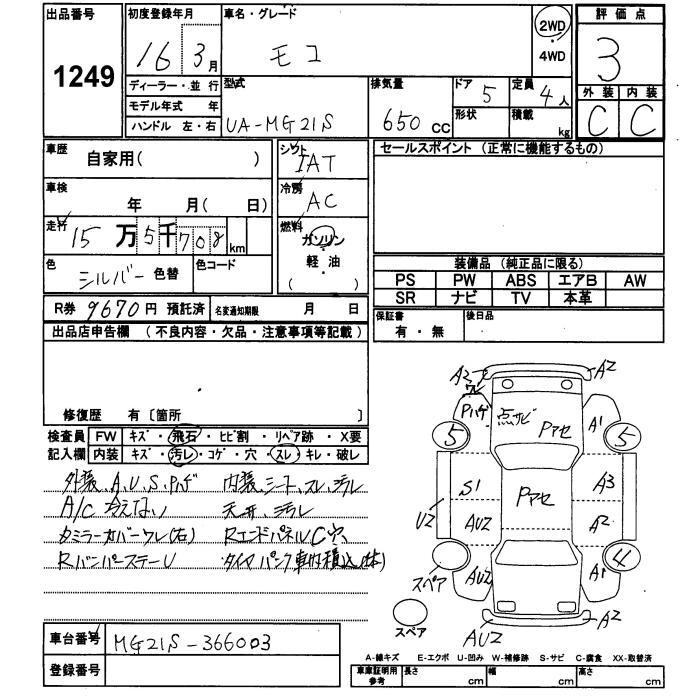 出品番号 初度登録年月 車名・グレード 2WD 評価点
1249 16 3月 モコ 4WD 3
ディーラー・並行 型式 排気量 ドア 定員 外装 内装
モデル年式 年 5 4人 C C
ハンドル 左・右 UA-MG21S 650cc 形状 積載 kg
車歴 自家用( ) シフト IAT セールスポイント (正常に機能するもの)
車検 年 月( 日) 冷房 AC
走行 15万5千708km 燃料 ガソリン
軽・油
( )
色 シルバー 色替 色コード
装備品 (純正品に限る)
PS PW ABS エアB AW
SR ナビ TV 本革
R券 9670円 預託済 名変通知期限 月 日
保証書 有・無 後日品
出品店申告欄 (不良内容・欠品・注意事項等記載)
修復歴 有〔箇所 〕
検査員 FW キズ・飛石・ヒビ割・リペア跡・X要
記入欄 内装 キズ・汚レ・コゲ・穴・スレ・キレ・破レ
外装、A、U、S、Pハゲ 内装、シート、スレ、汚レ
A/C 冷えない 天井 汚レ
ミラーカバーワレ(右) RエンドパネルC穴
Rバンパーステー U タイヤパンク 車内積込(1本)
車台番号 MG21S-366003
登録番号
A2 A2
ワレ
Pハゲ 点サビ Pアセ A1
5 5
S1 Pアセ A3
U2 AU2 A2
スペア AU2 A1 4
スペア AU2 A2
A-線キズ E-エクボ U-凹み W-補修跡 S-サビ C-腐食 XX-取替済
車庫証明用参考 長さ cm 幅 cm 高さ cm